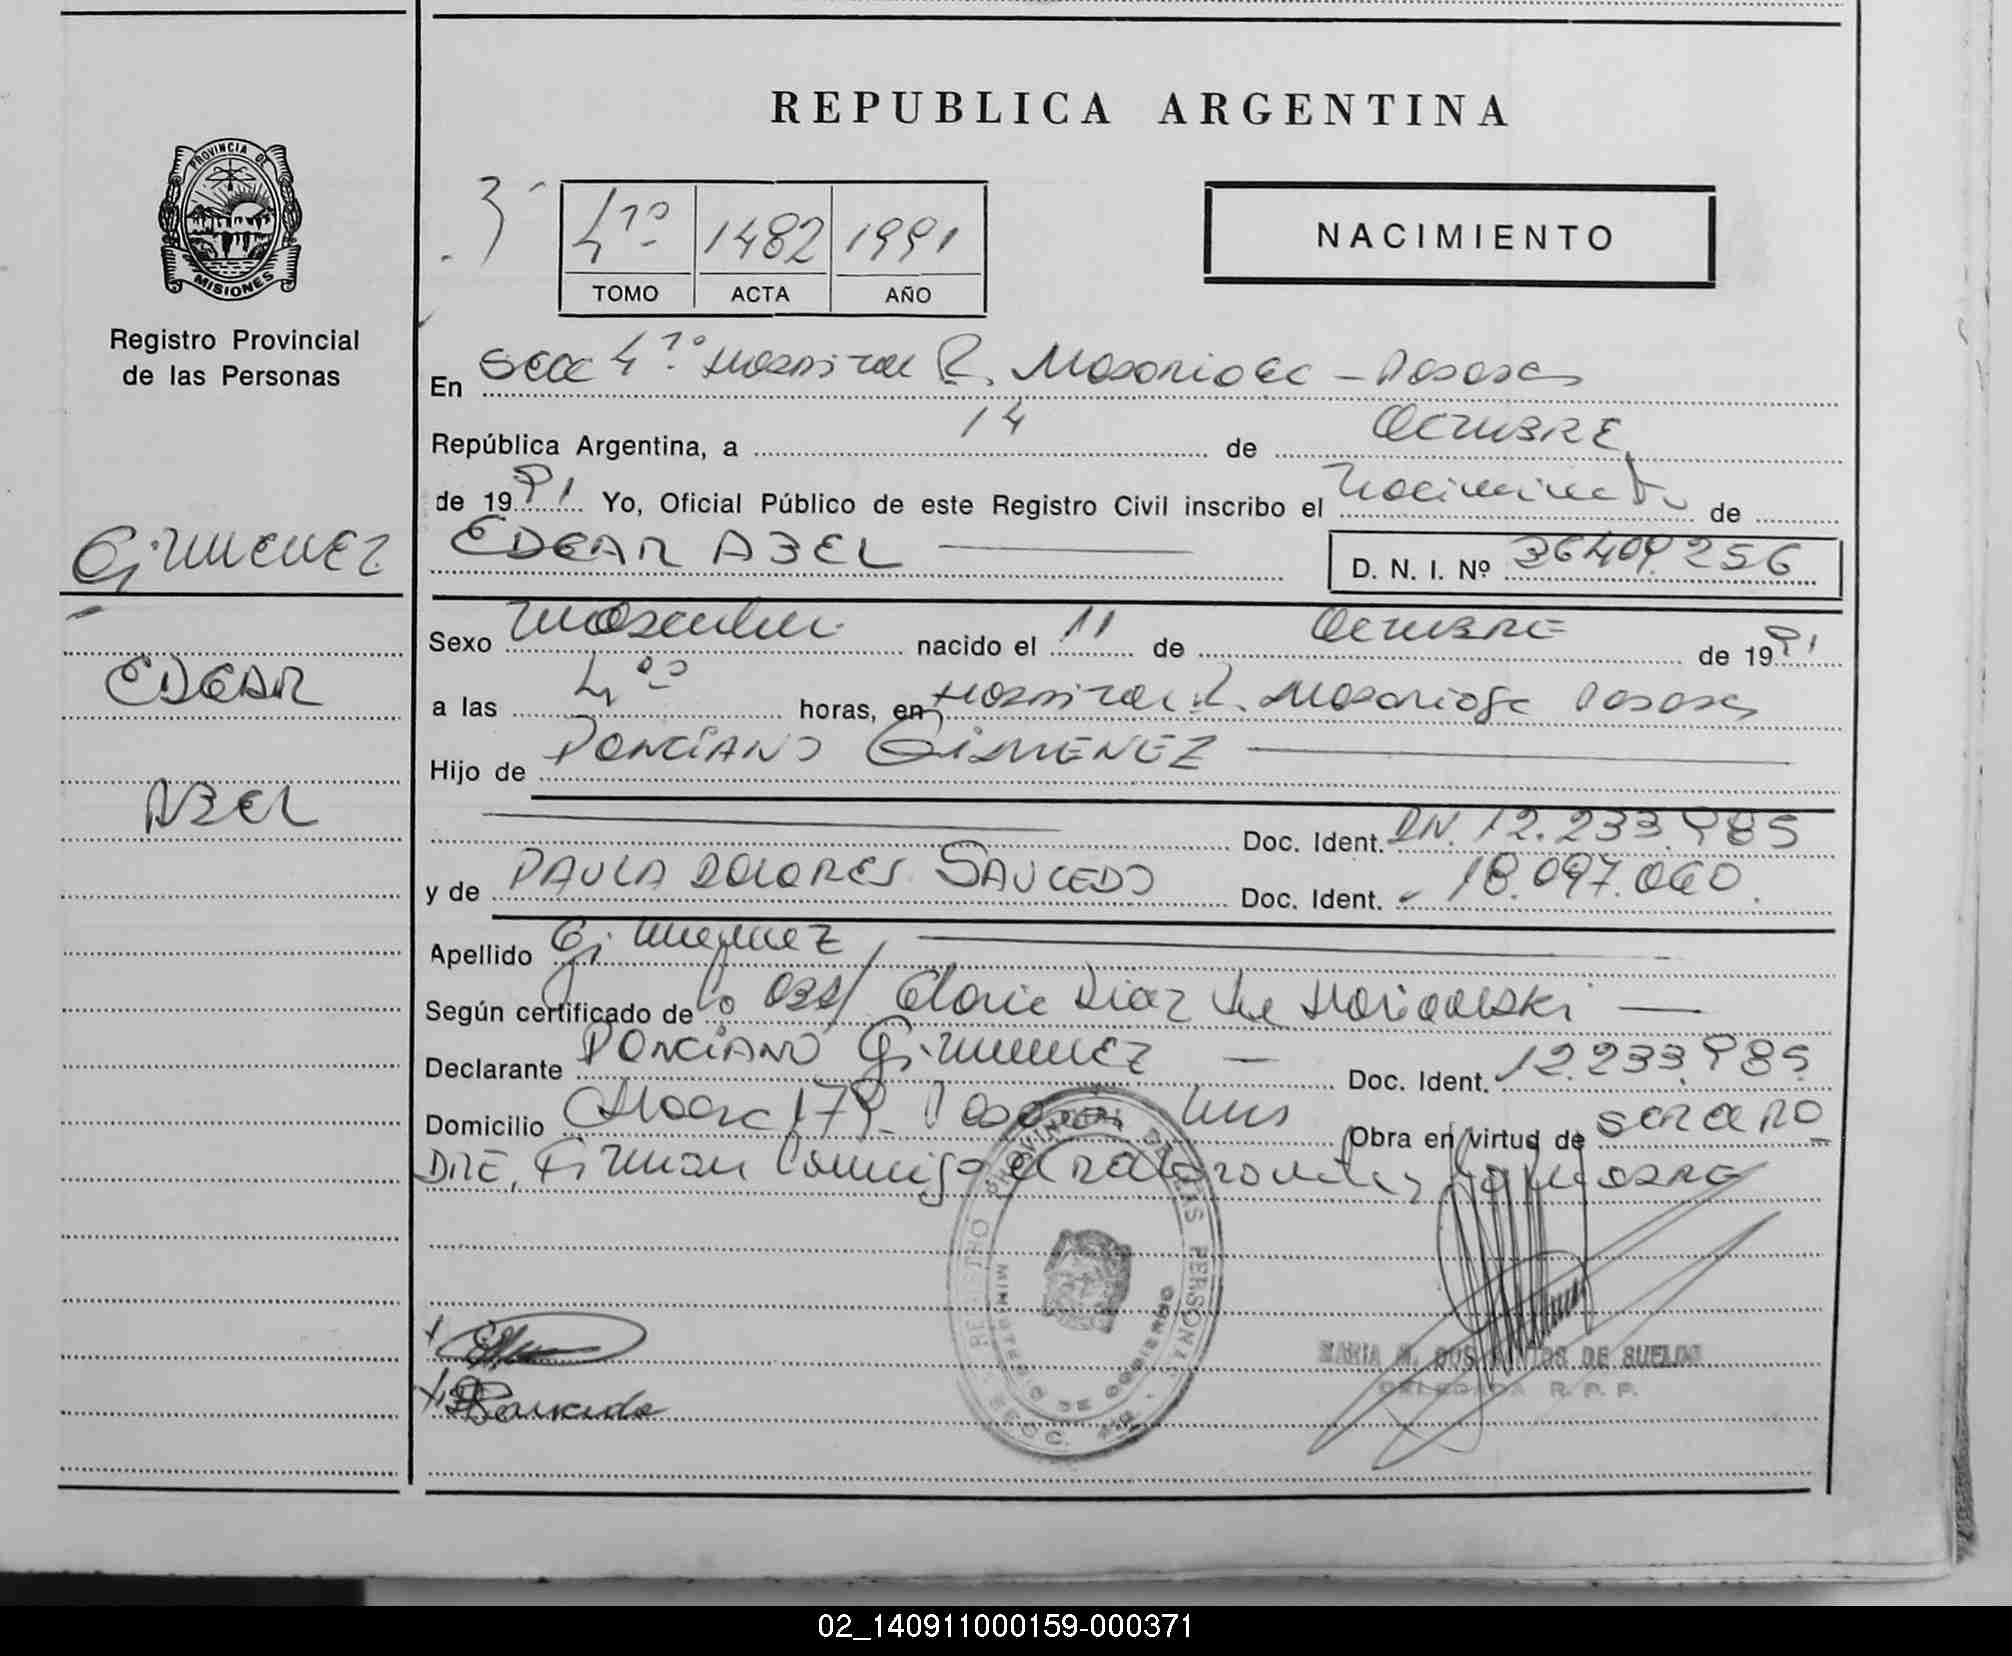 REPUBLICA ARGENTINA
PROVINCIA DE
MISIONES
Registro Provincial
de las Personas
4ta 1482 1991
TOMO ACTA AÑO
NACIMIENTO
En Secc 4ta Hospital R. Madariaga - Posadas
República Argentina, a 14 de Octubre
de 1991 Yo, Oficial Público de este Registro Civil inscribo el Nacimiento de
GIMENEZ
EDGAR ABEL
D. N. I. Nº 36409.256
Sexo Masculino nacido el 11 de Octubre de 1991
EDGAR
a las 4 horas, en Hospital R. Madariaga Posadas
Hijo de PONCIANO GIMENEZ
ABEL
Doc. Ident. DN. 12.233.985
y de PAULA DOLORES SAUCEDO Doc. Ident. 18.097.060
Apellido Gimenez
Según certificado de la Obst/ Gloria Diaz de
Declarante PONCIANO Gimenez Doc. Ident. 12.233.985
Domicilio 179 Posadas Mns Obra en virtud de ser el PA
DRE, Firman Conmigo el Madre
REGISTRO PROVINCIAL DE LAS PERSONAS
MINISTERIO DE GOBIERNO
Saucedo
MARIA M. DOS SANTOS DE SUELDO
DELEGADA R. P. P.
02_140911000159-000371